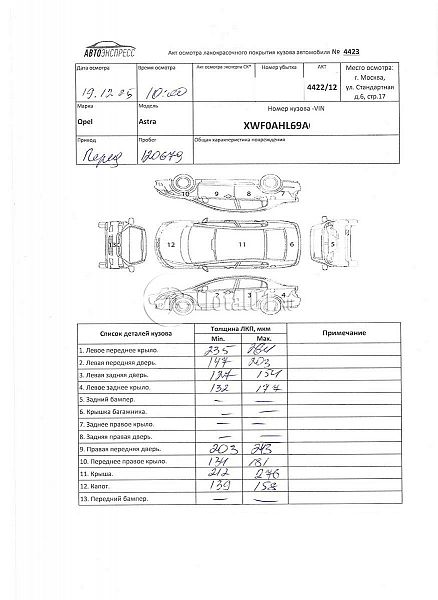 АВТОЭКСПРЕСС
Акт осмотра лакокрасочного покрытия кузова автомобиля № 4423
Дата осмотра Время осмотра Акт осмотра эксперта СК* Номер убытка АКТ Место осмотра:
19.12.05 10:00 4422/12 г. Москва, ул. Стандартная д.6, стр.17
Марка Модель Номер кузова -VIN
Opel Astra XWF0AHL69A
Привод Пробег Общая характеристика повреждений
Перед 120679
9 8
13 12 11 6 5
2 3
Список деталей кузова Толщина ЛКП, мкм Примечание
Min. Max.
1. Левое переднее крыло. 235
2. Левая передняя дверь. 147 203
3. Левая задняя дверь. 127 154
4. Левое заднее крыло. 132 144
5. Задний бампер. — —
6. Крышка багажника. — —
7. Заднее правое крыло. — —
8. Задняя правая дверь. — —
9. Правая передняя дверь. 203 243
10. Переднее правое крыло. 131 181
11. Крыша. 212 276
12. Капот. 139 158
13. Передний бампер. — —